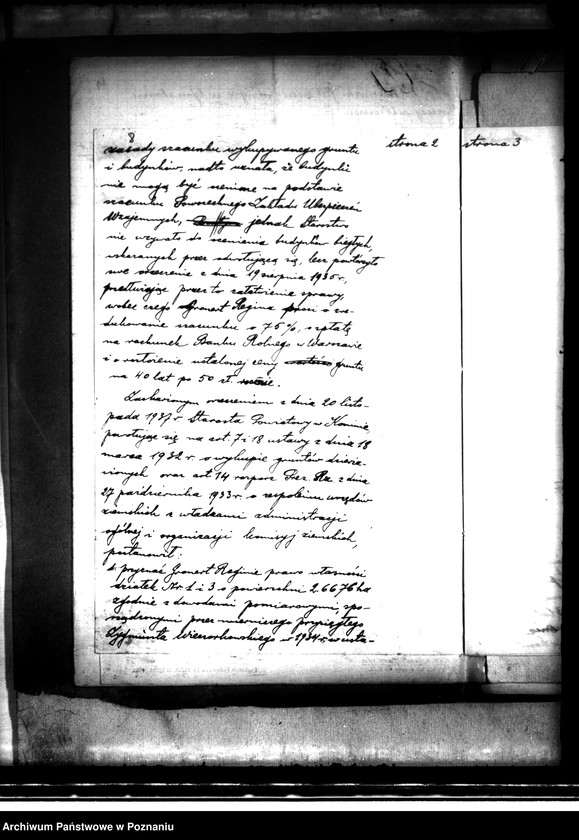 8
zasady szacunku wykupywanego gruntu
i budynków, nadto uznała, że budynki
nie mogą być ocenione na podstawie
szacunku Powszechnego Zakładu Ubezpieczeń
Wzajemnych, jednak Starostwo
nie wezwało do ocenienia budynków biegłych,
wskazanych przez odwołującą się, lecz powtórzyło
swe orzeczenie z dnia 19 sierpnia 1935 r.,
przez to załatwienie sprawy,
wobec czego Gronert Regina prosi o zre-
dukowanie szacunku o 75%, spłatę
na rachunek Banku Rolnego w Warszawie
i o rozłożenie ustalonej ceny gruntu
na 40 lat po 50 zł.
Zaskarżonym orzeczeniem z dnia 20 listo-
pada 1937 r. Starosta Powiatowy w Koninie
powołując się na art. 7 i 18 ustawy z dnia 18
marca 1932 r. o wykupie gruntów dzierża-
wionych oraz art 14 rozporz. Prez. Rz. z dnia
27 października 1933 r. o zespoleniu urzędów
ziemskich z władzami administracji
ogólnej i organizacji komisyj ziemskich,
postanowił:
1. przyznać Gronert Reginie prawo własności
działek Nr. 1 i 3 o powierzchni 2.6676 ha
zgodnie z dowodami pomiarowymi, spo-
rządzonymi przez mierniczego przysięgłego
Zygmunta w 1934 r. w usta-
strona 2
strona 3